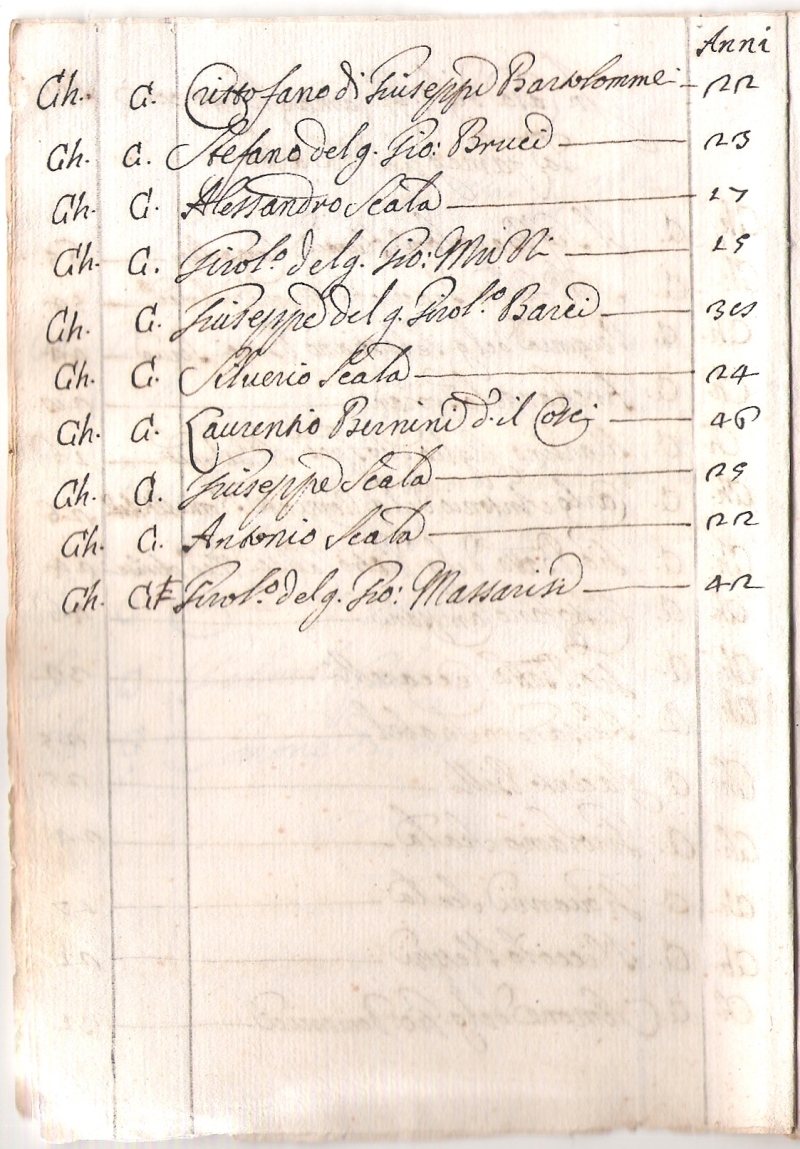 Anni
Ch. C. Cristofano di Giuseppe Bartolommei 22
Ch. C. Stefano del q. Gio: Brucci 23
Ch. C. Alessandro Scata 17
Ch. C. Girol.o del q. Gio: 19
Ch. C. Giuseppe del q. Girol.o Barci
Ch. C. Silverio Scata 24
Ch. C. Laurentio Bernini d.o il 46
Ch. C. Giuseppe Scata 29
Ch. C. Antonio Scata 22
Ch. C. Girol.o del q. Gio: Massarisi 42